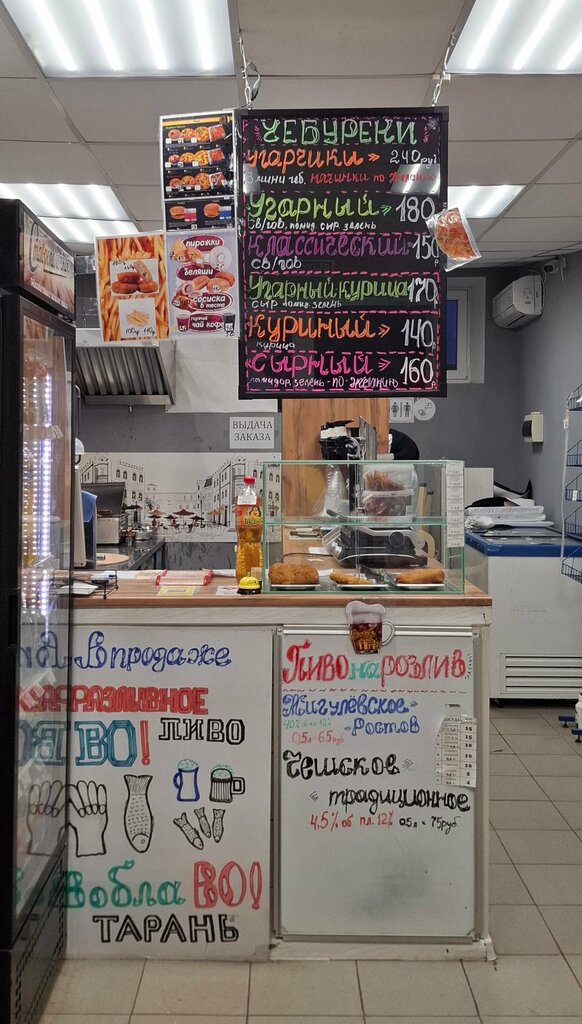 ЧЕБУРЕКИ
УГАРЧИКИ» 240руб
3 мини чеб. начинки по желанию
УГАРНЫЙ» 180
СВ/ГОВ. помид. сыр. зелень
КЛАССИЧЕСКИЙ» 150
СВ/ГОВ
УГАРНЫЙ КУРИЦА 170
сыр помид. зелень
КУРИНЫЙ» 140р
курица
СЫРНЫЙ» 160р
помидор, зелень-по-желанию
ПИРОЖКИ
БЕЛЯШИ
СОСИСКА
В ТЕСТЕ
ГОРЯЧИЙ
ЧАЙ КОФЕ
ВЫДАЧА
ЗАКАЗА
В продаже
РАЗЛИВНОЕ
ВО!
ПИВО
Вобла ВО!
ТАРАНЬ
Пиво на розлив
Жигулёвское-
-Ростов
0,5л=65руб
Чешское
«традиционное»
4,5% об пл. 12% 0,5л = 75руб